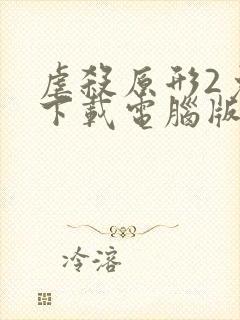 虐殺原形2
下載電腦版
冷溶